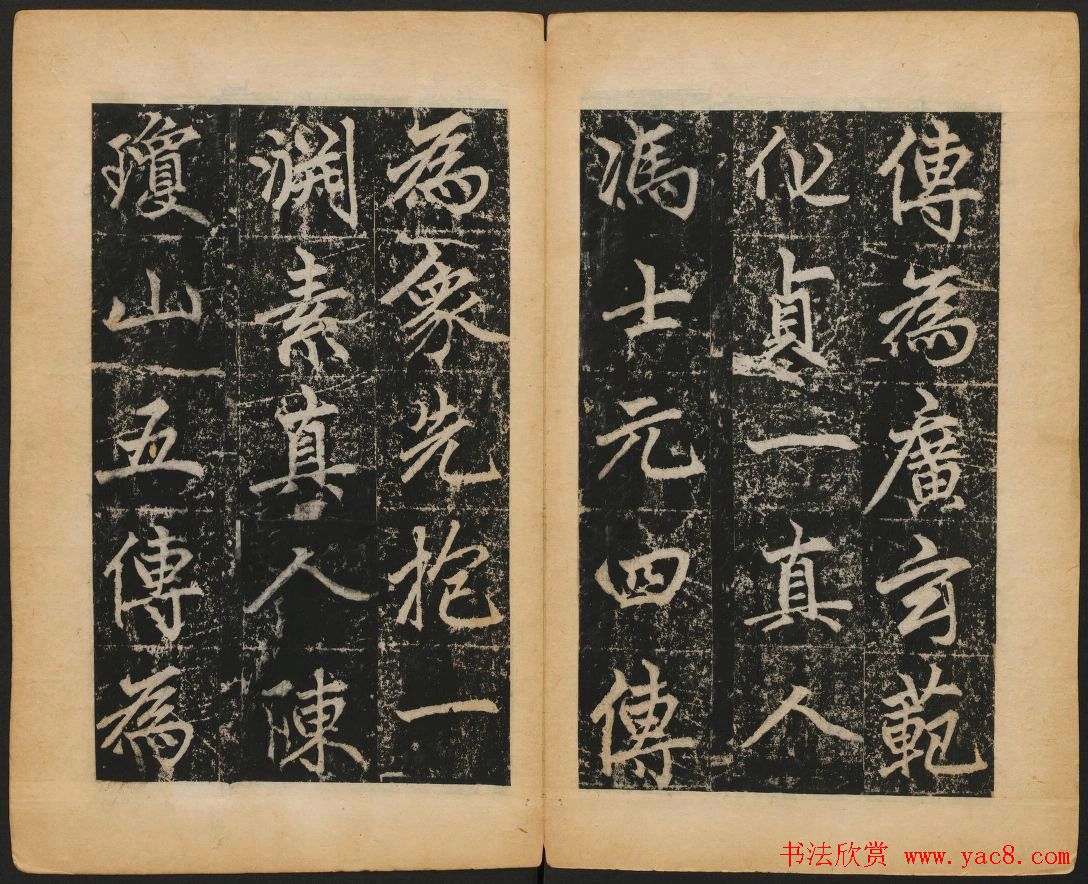 傳為廣玄範
化貞一真人
馮士元四傳
為象先抱一
淵素真人陳
瓊山五傳為
书法欣赏 www.yac8.com